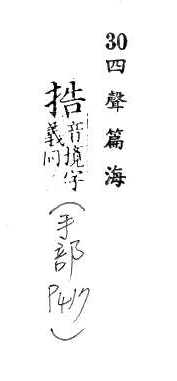 30四聲篇海
捁音境字義同
(手部P417)